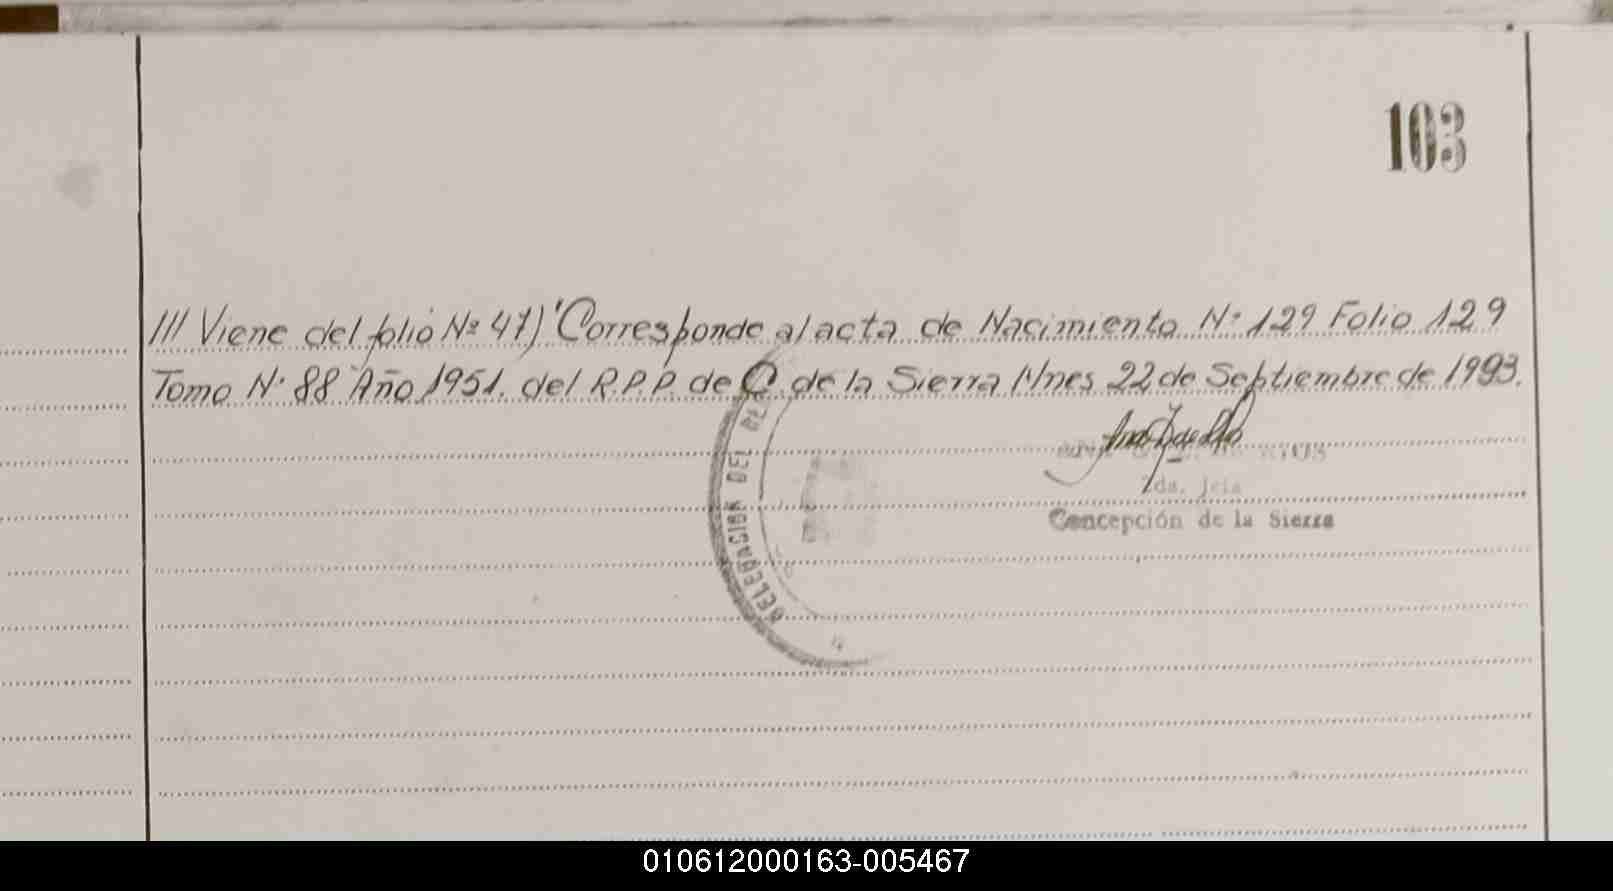 103
/// Viene del folio Nº 47) Corresponde al acta de Nacimiento Nº 129 Folio 129
Tomo Nº 88 Año 1951. del R.P.P. de C. de la Sierra Mnes 22 de Septiembre de 1993.
RIOS
2da. Jefa
Concepción de la Sierra
DELEGACION DEL RE
010612000163-005467